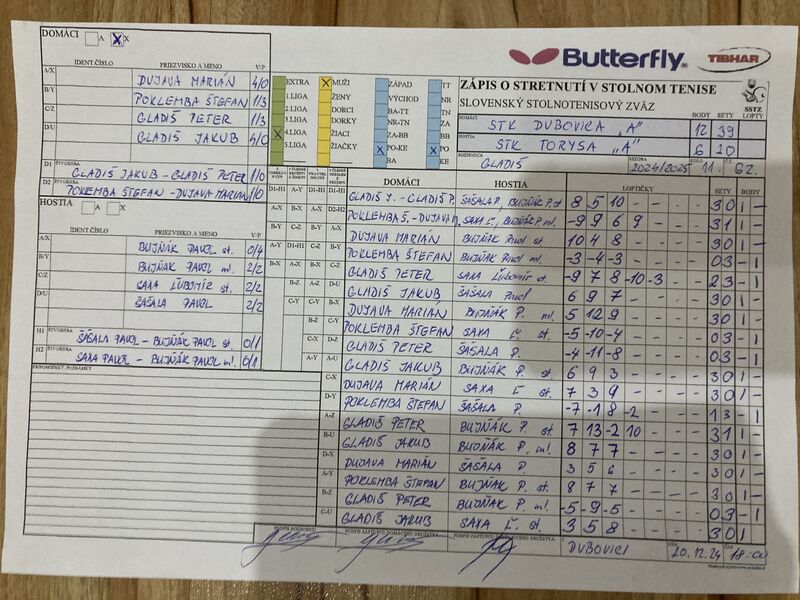 DOMÁCI A X
IDENT.ČÍSLO PRIEZVISKO A MENO V/P
A/X DUJAVA MARIÁN 4/0
B/Y POKLEMBA ŠTEFAN 1/3
C/Z GLADIŠ PETER 1/3
D/U GLADIŠ JAKUB 4/0
D1 ŠTVORHRA GLADIŠ JAKUB - GLADIŠ PETER 1/0
D2 ŠTVORHRA POKLEMBA ŠTEFAN - DUJAVA MARIÁN 1/0
HOSTIA A X
IDENT.ČÍSLO PRIEZVISKO A MENO V/P
A/X BUJŇÁK PAVOL st. 0/4
B/Y BUJŇÁK PAVOL ml. 2/2
C/Z SAXA ĽUBOMÍR st. 2/2
D/U ŠAŠALA PAVOL 2/2
H1 ŠTVORHRA ŠAŠALA PAVOL - BUJŇÁK PAVOL st. 0/1
H2 ŠTVORHRA SAXA PAVOL - BUJŇÁK PAVOL ml. 0/1
PRIPOMIENKY, POZNÁMKY
EXTRA MUŽI ZÁPAD TT
1.LIGA ŽENY VÝCHOD NR
2.LIGA DORCI BA-TT TN
3.LIGA DORKY NR-TN ZA
4.LIGA ŽIACI ZA-BB BB
5.LIGA ŽIAČKY PO-KE PO
BA KE
Butterfly TIBHAR
ZÁPIS O STRETNUTÍ V STOLNOM TENISE
SLOVENSKÝ STOLNOTENISOVÝ ZVÄZ SSTZ
BODY SETY LOPTY
DOMÁCI STK DUBOVICA "A" 12 39
HOSTIA STK TORYSA "A" 6 20
ROZHODCA GLADIŠ SEZÓNA 2024/2025 KOLO 11. Č. 62.
DOMÁCI HOSTIA LOPTIČKY SETY BODY
D1-H1 GLADIŠ J. - GLADIŠ P. ŠAŠALA P., BUJŇÁK P. st 8 5 10 - - - - 3 0 1 -
D2-H2 POKLEMBA Š. - DUJAVA M. SAXA Ľ., BUJŇÁK P. ml. -9 9 6 9 - - - 3 1 1 -
A-X DUJAVA MARIÁN BUJŇÁK Pavol st. 10 4 8 - - - - 3 0 1 -
B-Y POKLEMBA ŠTEFAN BUJŇÁK Pavol ml. -3 -4 -3 - - - - 0 3 - 1
C-Z GLADIŠ PETER SAXA Ľubomír st. -9 7 8 -10 -3 - - 2 3 - 1
D-U GLADIŠ JAKUB ŠAŠALA Pavol 6 9 7 - - - - 3 0 1 -
B-X DUJAVA MARIÁN BUJŇÁK P. ml. 5 12 9 - - - - 3 0 1 -
C-Y POKLEMBA ŠTEFAN SAXA Ľ. st. -5 -10 -4 - - - - 0 3 - 1
D-Z GLADIŠ PETER ŠAŠALA P. -4 -11 -8 - - - - 0 3 - 1
A-U GLADIŠ JAKUB BUJŇÁK P. st. 6 9 3 - - - - 3 0 1 -
C-X DUJAVA MARIÁN SAXA Ľ st. 7 3 9 - - - - 3 0 1 -
D-Y POKLEMBA ŠTEFAN ŠAŠALA P. -7 -1 8 -2 - - - 1 3 - 1
A-Z GLADIŠ PETER BUJŇÁK P. st. 7 13 -2 10 - - - 3 1 1 -
B-U GLADIŠ JAKUB BUJŇÁK P. ml. 8 7 7 - - - - 3 0 1 -
D-X DUJAVA MARIÁN ŠAŠALA P. 3 5 6 - - - - 3 0 1 -
A-Y POKLEMBA ŠTEFAN BUJŇÁK P. st. 8 7 7 - - - - 3 0 1 -
B-Z GLADIŠ PETER BUJŇÁK P. ml. -5 -9 -5 - - - - 0 3 - 1
C-U GLADIŠ JAKUB SAXA Ľ. st. 3 5 8 - - - - 3 0 1
PODPIS ROZHODCU PODPIS ZÁSTUPCU DOMÁCEHO DRUŽSTVA DUBOVICI 20.12.24 18:00